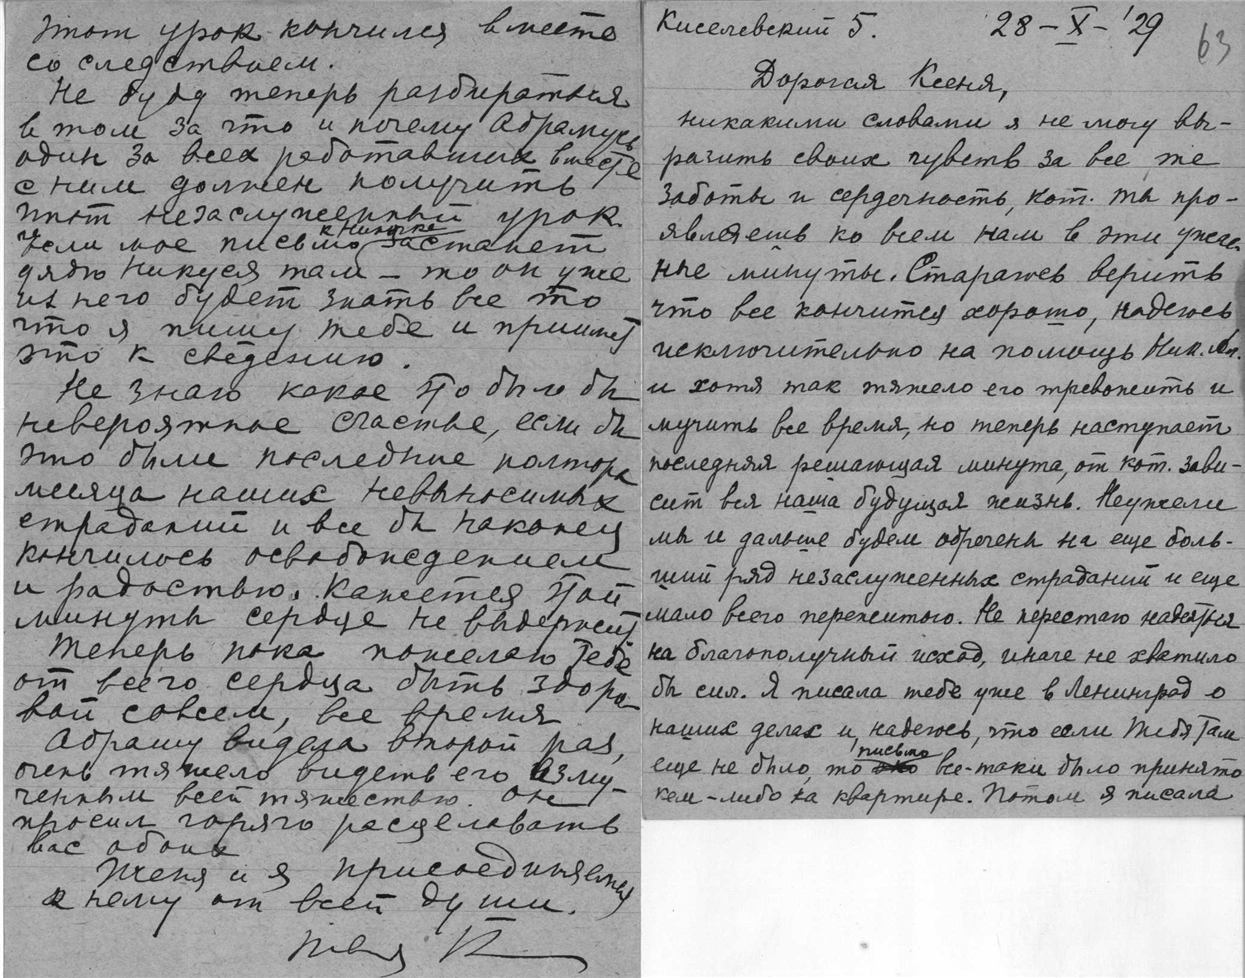 Киселевский 5. 28–X–'29
63
Дорогая Ксеня,
никакими словами я не могу вы-
разить своих чувств за все те
заботы и сердечность, кот. ты про-
являешь ко всем нам в эти ужас-
ные минуты. Стараюсь верить
что все кончится хорошо, надеюсь
исключительно на помощь Ник. Ал.
и хотя так тяжело его тревожить и
мучить все время, но теперь наступает
последняя решающая минута, от кот. зави-
сит вся наша будущая жизнь. Неужели
мы и дальше будем обречены на еще боль-
ший ряд незаслуженных страданий и еще
мало всего пережитого. Не перестаю надеяться
на благополучный исход, иначе не хватило
бы сил. Я писала тебе уже в Ленинград о
наших делах и, надеюсь, что если тебя там
еще не было, то письмо все-таки было принято
кем-либо на квартире. Потом я писала
этот урок кончился вместе
со следствием.
Не буду теперь разбираться
в том за что и почему Абрамусь
один за всех работавших вместе
с ним должен получить
этот незаслуженный урок
Если мое письмо к Ниночке застанет
дядю Никуся там – то он уже
из него будет знать все то
что я пишу тебе и примет
это к сведению.
Не знаю какое это было бы
невероятное счастье, если бы
это были последние полтора
месяца наших невыносимых
страданий и все бы наконец
кончилось освобождением
и радостью. Кажется этой
минуты сердце не выдержит
Теперь пока пожелаю тебе
от всего сердца быть здоро-
вой совсем, все время
Абрашу видела второй раз,
очень тяжело видеть его изму-
ченным всей тяжестью. Он
просил горячо расцеловать
вас обоих
Женя и я присоединяемся
к нему от всей души.
твоя